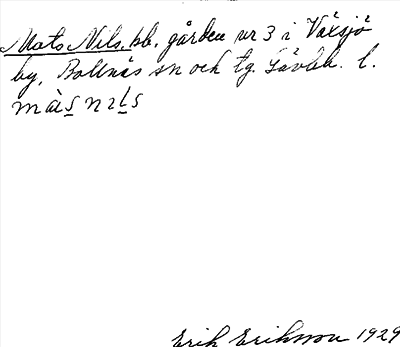 Mats Nils. bb. gården nr 3 i Växsjö
by, Bollnäs sn och tg. Gävleb. l.
màs nıls
Erik Eriksson 1929